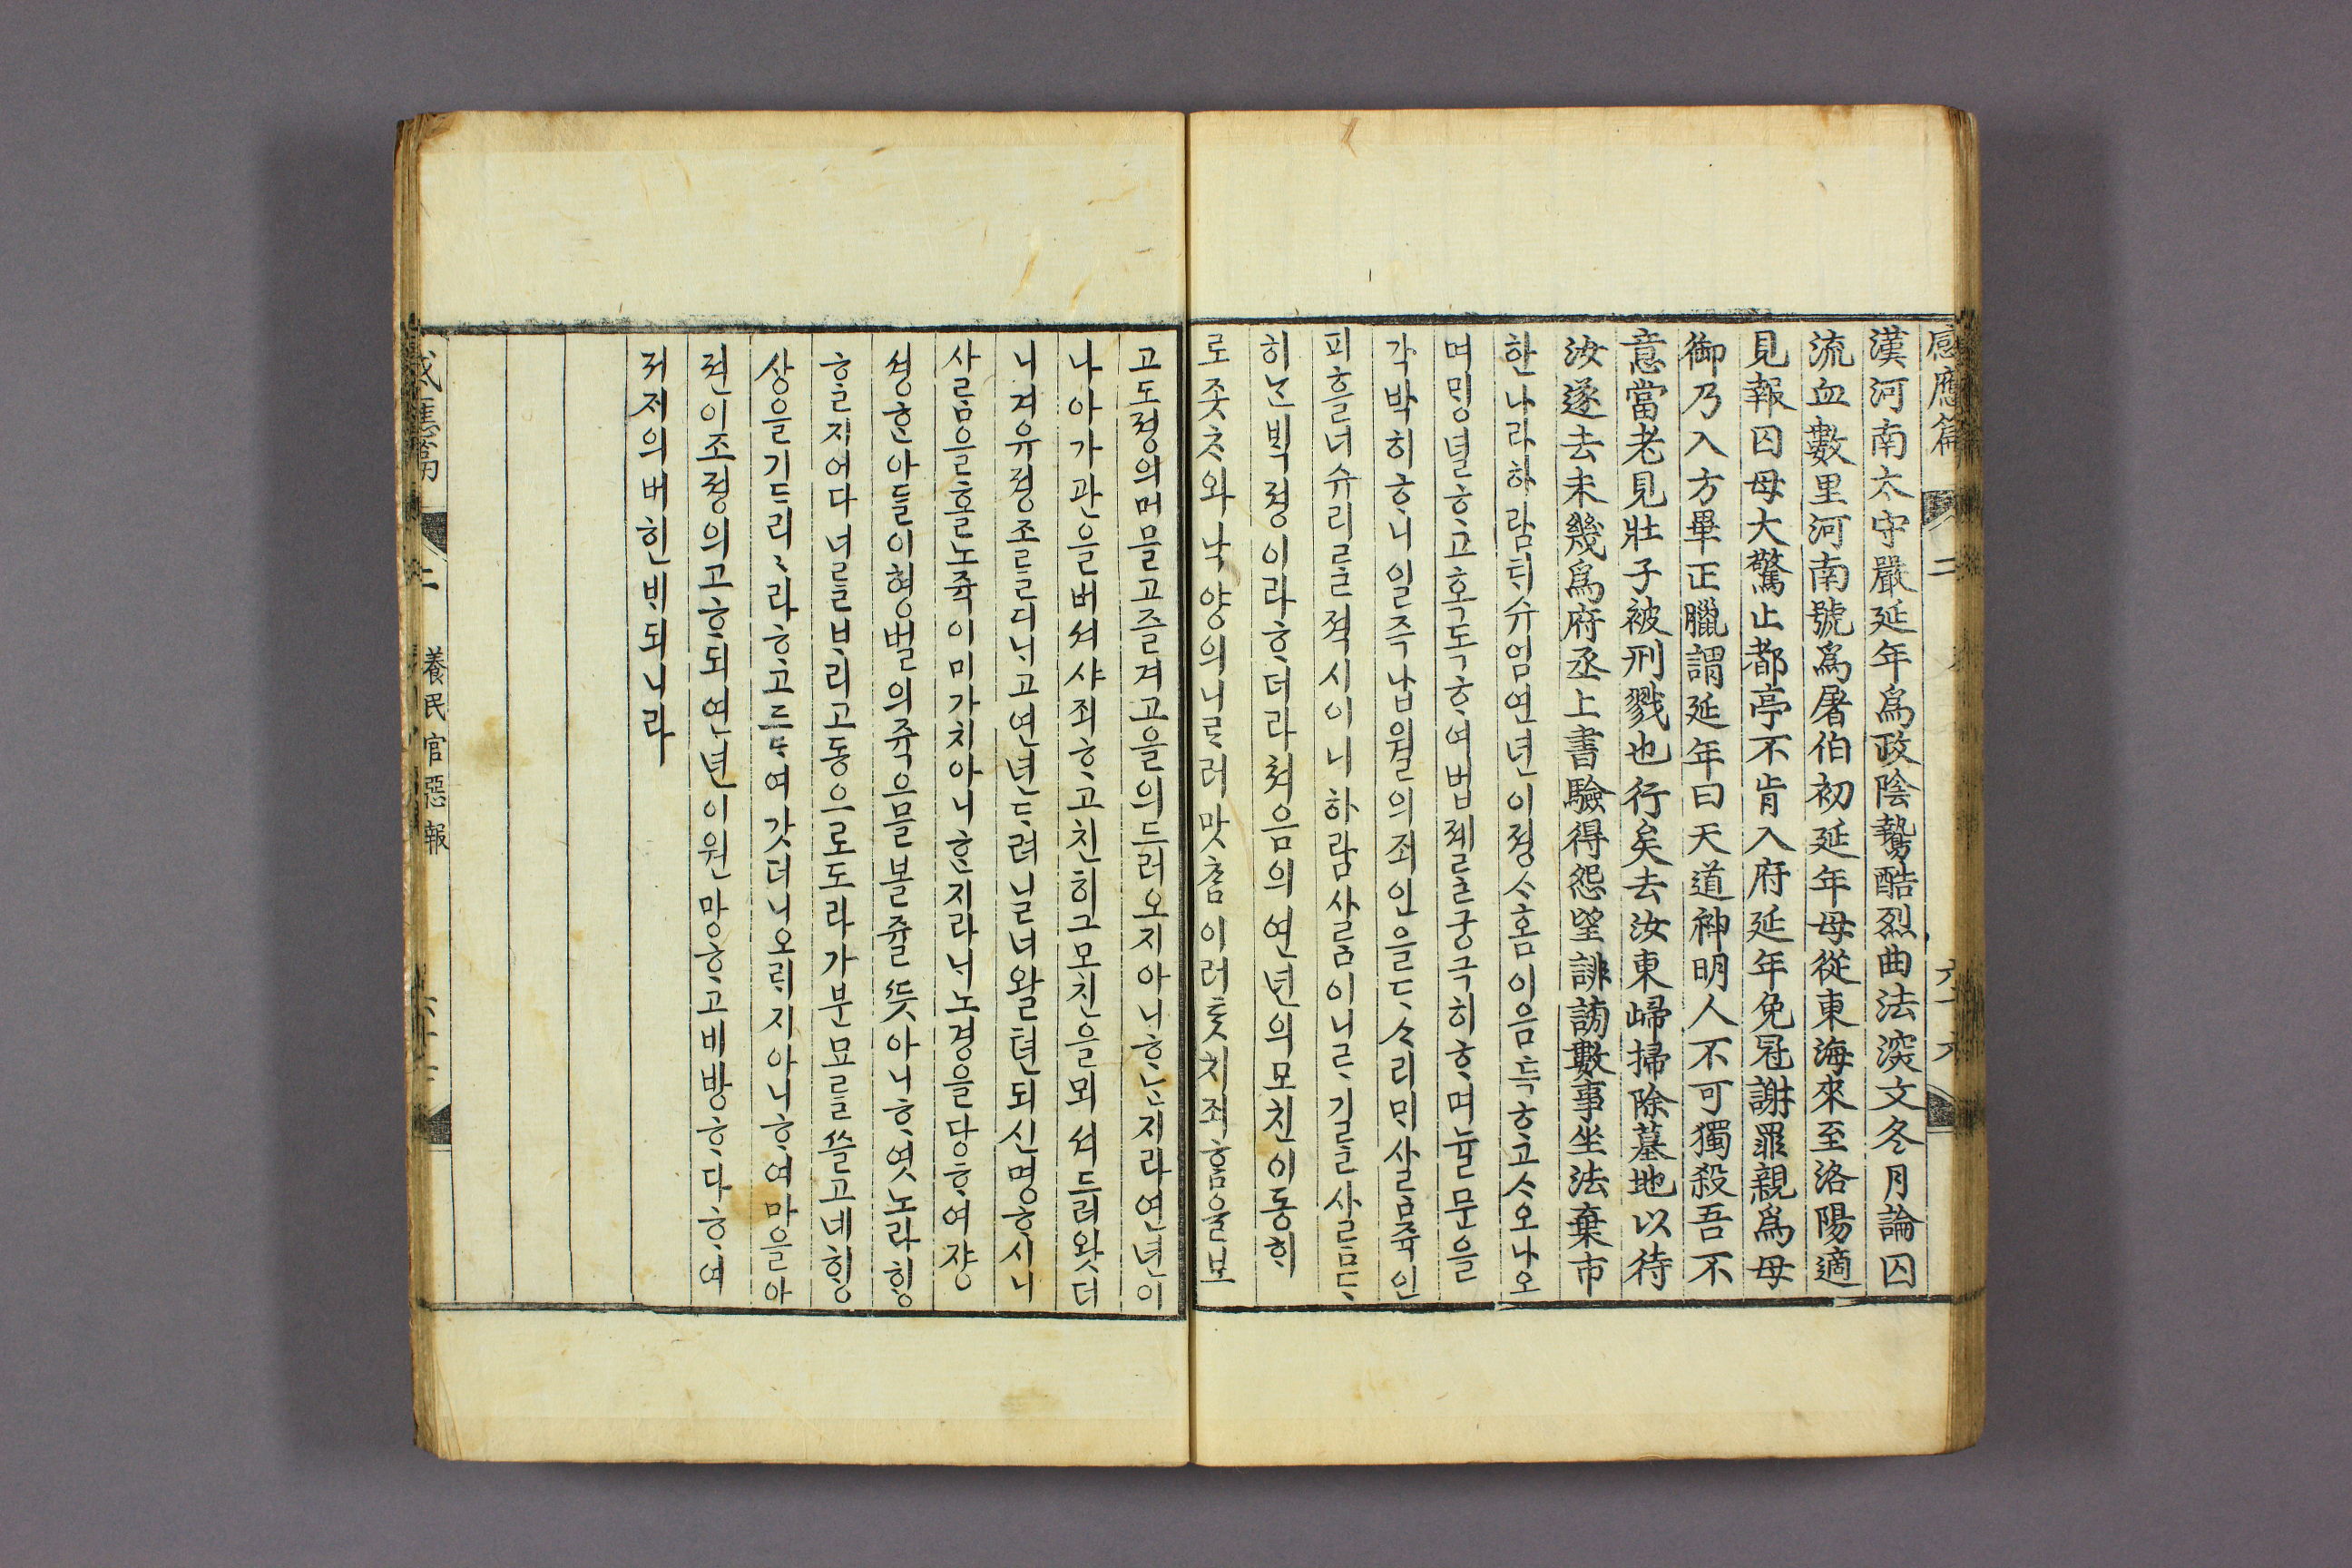 感應篇 二 六十六
漢河南太守嚴延年爲政陰鷙酷烈曲法深文冬月論囚
流血數里河南號爲屠伯初延年母從東海來至洛陽適
見報囚母大驚止都亭不肯入府延年免冠謝罪親爲母
御乃入方畢正臘謂延年曰天道神明人不可獨殺吾不
意當老見壯子被刑戮也行矣去汝東歸掃除墓地以待
汝遂去未幾爲府丞上書驗得怨望誹謗數事坐法棄市
한나라하람틱슈엄연년이졍ᄉᆞᄒᆞᆷ이음특ᄒᆞ고ᄉᆞ오나오
며밍녈ᄒᆞ고혹독ᄒᆞ여법졔ᄅᆞᆯ궁극히ᄒᆞ며뉼문을
각박히ᄒᆞ니일즉납월의죄인을다ᄉᆞ리ᄆᆡ살ᄅᆞᆷ쥭인
피흘너슈리ᄅᆞᆯ젹시이니하람사ᄅᆞᆷ이니ᄅᆞ기ᄅᆞᆯ사ᄅᆞᆷᄃᆞ
히ᄂᆞᆫᄇᆡᆨ졍이라ᄒᆞ더라쳐음의연년의모친이동ᄒᆡ
로좃ᄎᆞ와낙양의니ᄅᆞ러맛ᄎᆞᆷ이러틋치죄ᄒᆞᆷ을보
고도졍의머믈고즐겨고을의드러오지아니ᄒᆞᄂᆞᆫ지라연년이
나아가관을버셔샤죄ᄒᆞ고친히그모친을뫼셔드려왓더
니겨유졍조ᄅᆞᆯ디ᄂᆡ고연년ᄃᆞ려닐너왈텬되신명ᄒᆞ시니
사ᄅᆞᆷ을홀노쥭이미가치아니ᄒᆞᆫ지라ᄂᆡ노경을당ᄒᆞ여쟝
셩ᄒᆞᆫ아들이형벌의쥭으믈볼쥴ᄯᅳᆺ아니ᄒᆞ엿노라ᄒᆡᆼ
ᄒᆞᆯ지어다너ᄅᆞᆯᄇᆞ리고동으로도라가분묘ᄅᆞᆯᄡᅳᆯ고네ᄒᆡᆼ
상을기ᄃᆞ리리라ᄒᆞ고드ᄃᆡ여갓더니오ᄅᆡ지아니ᄒᆞ여마을아
젼이조졍의고ᄒᆞ되연년이원망ᄒᆞ고비방ᄒᆞ다ᄒᆞ여
져ᄌᆡ의버힌ᄇᆡ되니라
感應篇 二 養民官惡報 六十七